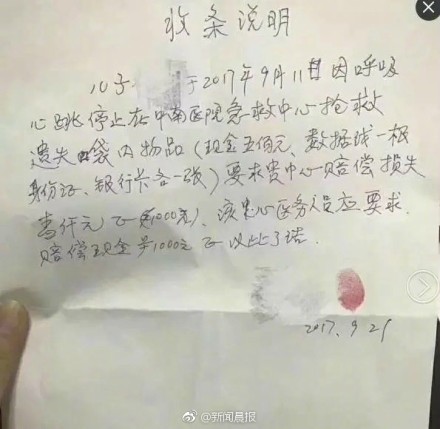 收条说明
儿子 于2017年9月11日因呼吸
心跳停止在中南医院急救中心抢救
遗失口袋内物品（现金五佰元、数据线一根
身份证、银行卡各一张）要求贵中心赔偿损失
壹仟元正（¥1000元）、该中心医务人员应要求
赔偿现金¥1000元正以此了结.
2017.9.21
@新闻晨报